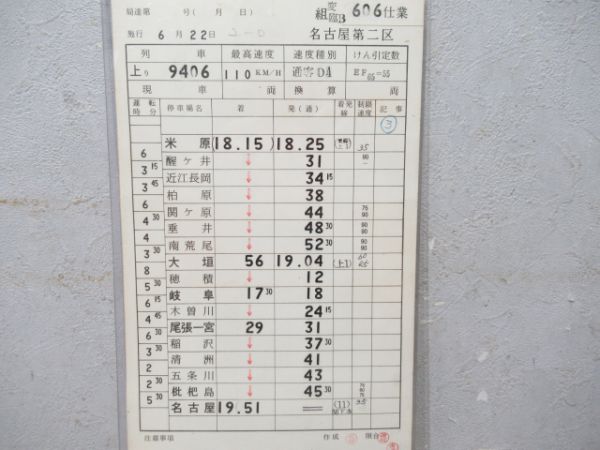 局達第 号( 月 日) 組 変臨B 606仕業
施行 6月22日 名古屋第二区
列車 最高速度 速度種別 けん引定数
上り 9406 110 KM/H 通客D4 EF65=55
現車 両 換算 両
運転時分 停車場名 着 発(通) 着発線 制限速度 記事
③
米原 (18.15) 18.25 35
6 醒ヶ井 ↓ 31
3 15 近江長岡 ↓ 34 15
3 45 柏原 ↓ 38
6 関ヶ原 ↓ 44 75 90
4 30 垂井 ↓ 48 30 90 90
4 南荒尾 ↓ 52 30 90 90
3 30 大垣 56 19.04 (上1) 60
8 穂積 ↓ 12
5 30 岐阜 17 30 18
6 15 木曽川 ↓ 24 15
4 45 尾張一宮 29 31
6 30 稲沢 ↓ 37 30
3 30 清洲 ↓ 41
2 五条川 ↓ 43
2 30 枇杷島 ↓ 45 30
5 30 名古屋 19.51 = (11) 35
注意事項 作成 照合